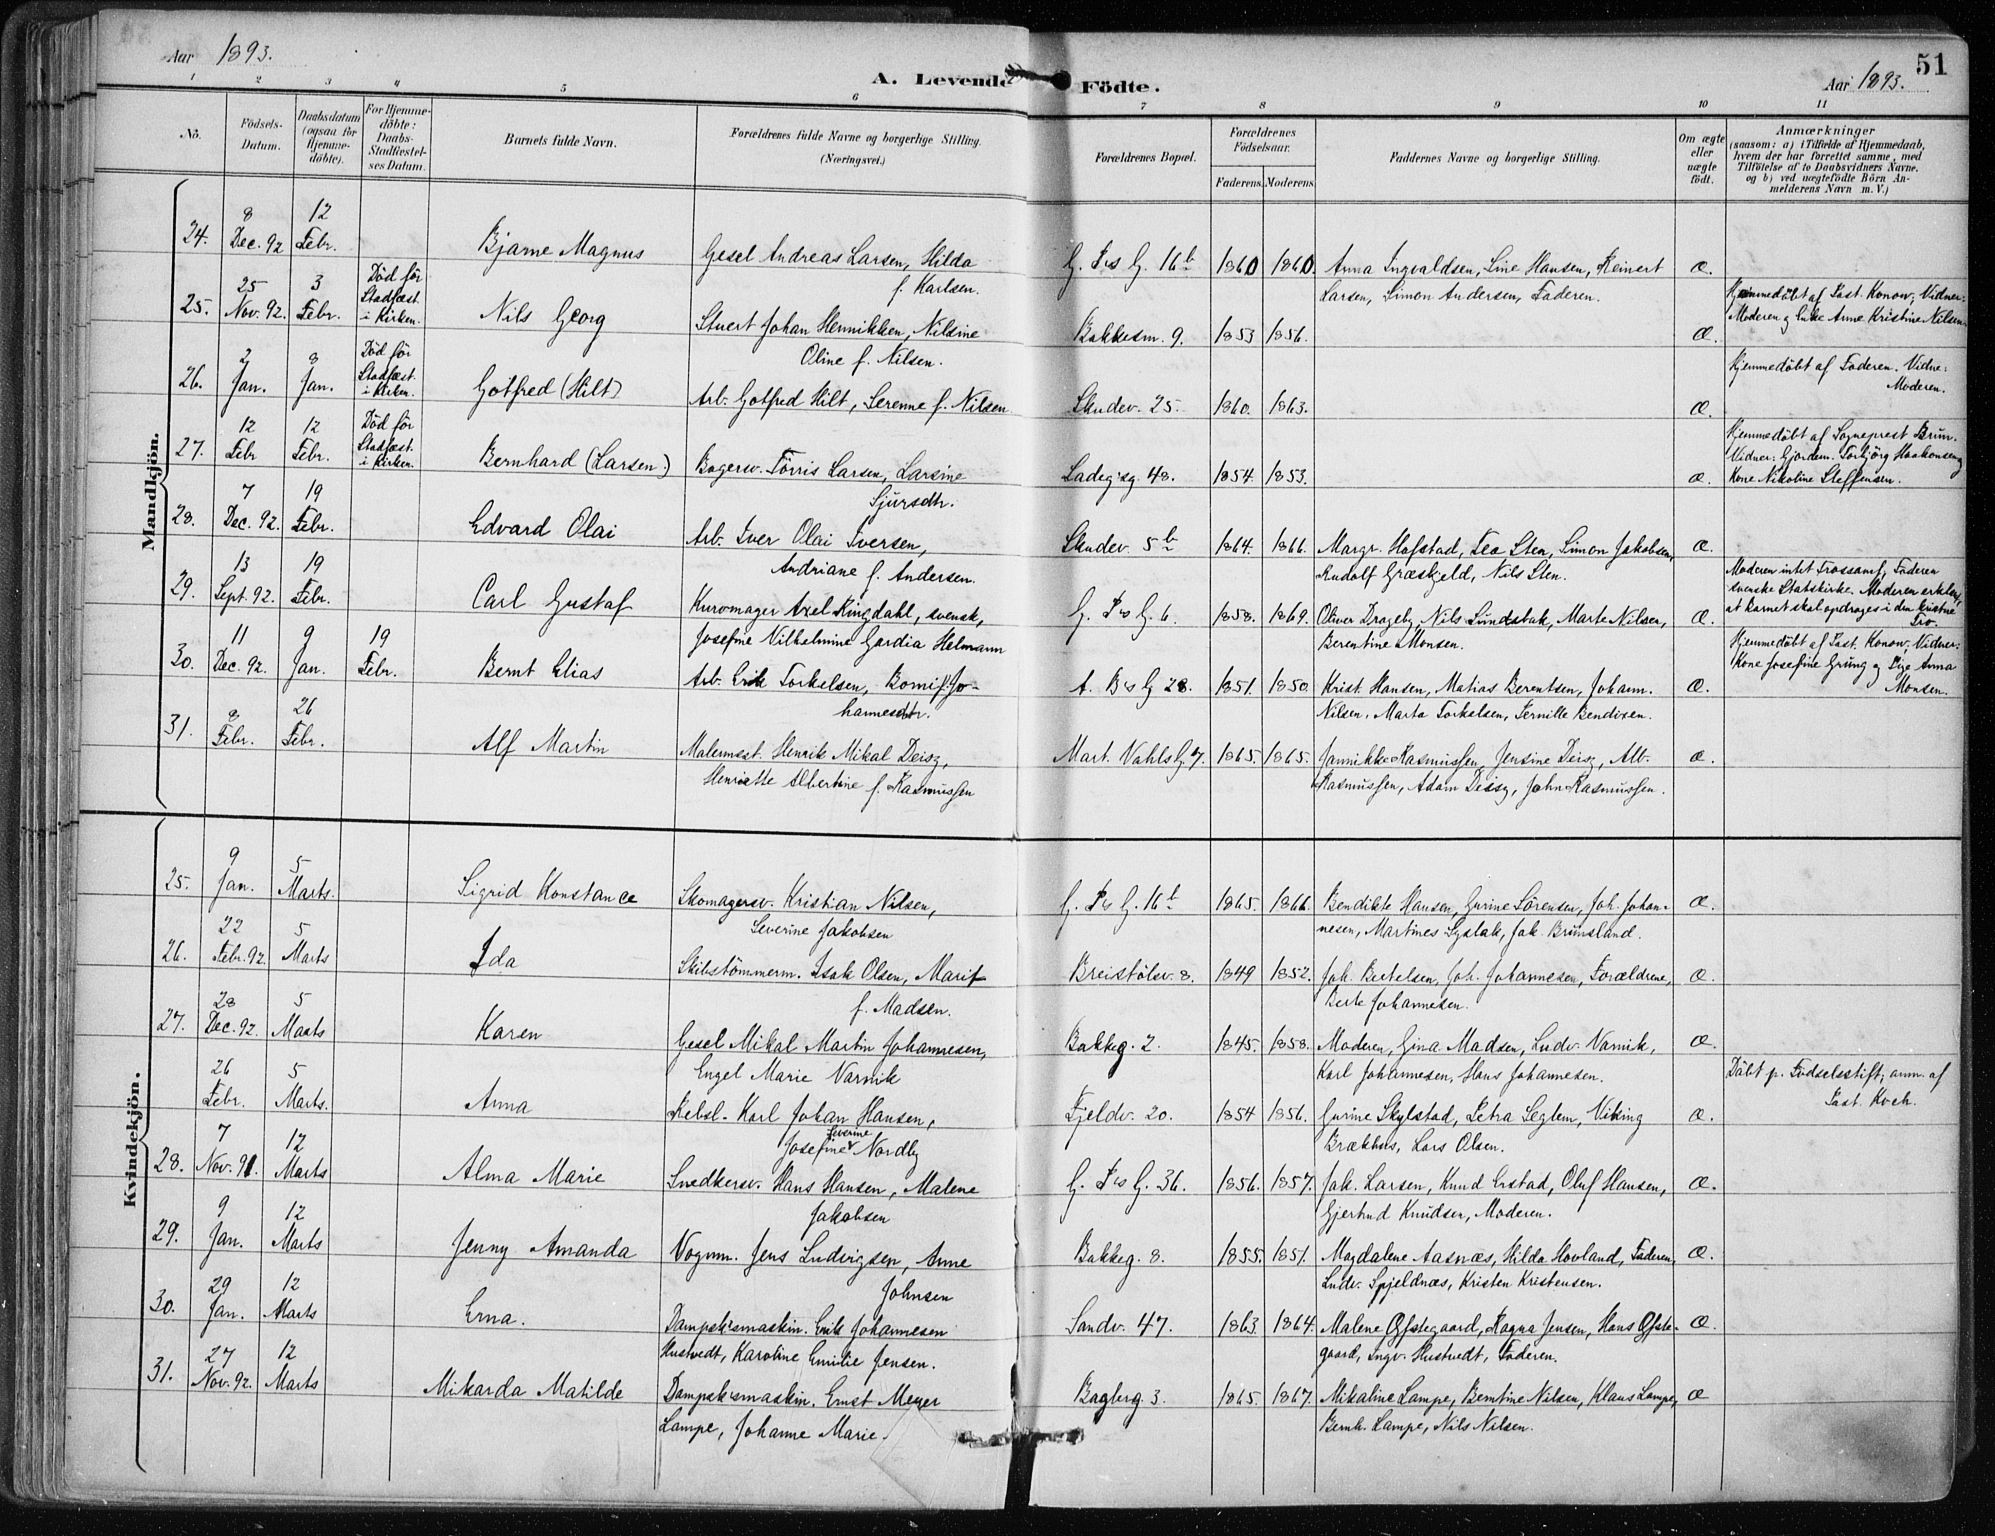 Aar 1893.
A. Levende Födte.
Aar 1893.
51
1 2 3 4 5 6 7 8 9 10 11
No.
Födsels-Datum.
Daabsdatum (ogsaa for Hjemme-döbte).
For Hjemme-döbte: Daabs-Stadfæstel-ses Datum.
Barnets fulde Navn.
Forældrenes fulde Navne og borgerlige Stilling.
(Næringsvei.)
Forældrenes Bopæl.
Forældrenes Födselsaar.
Faderens. Moderens.
Faddernes Navne og borgerlige Stilling.
Om ægte eller uægte födt.
Anmærkninger
(saasom: a) i Tilfælde af Hjemmedaab, hvem der har forrettet samme, med Tilföielse af to Daabsvidners Navne. og b) ved uægtefödte Börn An-melderens Navn m. V.)
Mandkjön.
24. 8 Dec. 92 12 Febr. Bjarne Magnus Gesel Andreas Larsen, Hilda
f. Karlsen. G. Ps G. 16b 1860 1860. Anna Ingvaldsen, Line Hansen, Reinert Æ.
Larsen, Simon Andersen, Faderen.
25. 25 Nov. 92. 3 Febr. Död för Stadfæst. i Kirken. Nils Georg Stuert Johan Hennikken, Nilsine
Oline f. Nilsen. Bakkesm. 9. 1853 1856. Æ. Hjemmedöbt af Past. Konow; Vidner:
Moderen og Enke Anne Kristine Nilsen.
26. 2 Jan. 8 Jan. Död för Stadfæst. i Kirken. Gotfred (Hilt) Arb. Gotfred Hilt, Serenne f. Nilsen
Skudev. 25. 1860. 1863. Æ. Hjemmedöbt af Faderen. Vidne:
Moderen.
27. 12 Febr 12 Febr. Död för Stadfæst. i Kirken. Bernhard (Larsen.) Bagersv. Törris Larsen, Larsine
Sjursdtr. Ladeg'sg. 48. 1854. 1853. Æ. Hjemmedöbt af Sogneprest Brun.
Vidner: Gjordem. Torbjörg Haakonsen og
Kone Nikoline Steffensen.
28. 7 Dec. 92. 19 Febr. Edvard Olai Arb. Iver Olai Iversen,
Andriane f. Andersen. Skudev. 5b 1864. 1866. Margr. Hofstad, Tea Sten, Simon Jakobsen, Æ.
Rudolf Græskjeld, Nils Sten.
29. 13 Sept. 92. 19 Febr. Carl Gustaf Kurvmager Axel Ringdahl, svensk,
Josefine Vilhelmine Gardia Helmann G. Ps G. 6. 1858. 1869. Oliver Drageby, Nils Sundsbak, Marte Nilsen, Æ.
Berentine Monsen.
Moderen intet Trossamf, Faderen
svenske Statskirke. Moderen erklær.
at Barnet skal opdrages i den kristne
Tro.
30. 11 Dec. 92. 9 Jan. 19 Febr. Bernt Elias Arb. Erik Torkelsen, Bomil Jo-
hannesdtr. A. Bs G 28. 1851. 1850. Krist. Hansen, Matias Berentsen, Johann. Æ.
Nilsen, Marta Torkelsen, Pernille Bendixen.
Hjemmedöbt af Past. Konow; Vidner:
Kone Josefine Grüng og Pige Anna
Monsen.
31. 8 Febr. 26 Febr. Alf Martin Malermst. Henrik Mikal Deisz,
Henriette Albertine f. Rasmussen Mart. Vahls G. 7. 1865. 1865. Jannikke Rasmussen, Jensine Deisz, Alb. Æ.
Rasmussen, Adam Deisz, John Rasmussen.
Kvindekjön.
25. 9 Jan. 5 Marts. Sigrid Konstance Skomagersv. Kristian Nilsen,
Severine Jakobsen G. Ps G. 16b 1865. 1866. Bendikte Hansen, Gurine Sörensen, Joh. Johan- Æ.
nesen, Martines Systak, Jak. Brunsland.
26. 22 Febr. 92. 5 Marts Ida Skibstömmerm. Isak Olsen, Marit
f. Madsen. Breistölsv. 8. 1849 1852. Joh. Bertelsen, Joh. Johannesen, Forældrene, Æ.
Berte Johannesen.
27. 28 Dec. 92. 5 Marts Karen Gesel Mikal Martin Johannesen,
Engel Marie Varnik Bakkeg. 2. 1845. 1858. Moderen, Gina Madsen, Ludv. Varnik, Æ.
Karl Johannesen, Hans Johannesen.
26 Febr. 5 Marts. Anna Kebsl. Karl Johan Hansen,
Josefine Severine Nordby Fjeldv. 20. 1854 1856. Gurine Skylstad, Petra Seglem, Viking Æ.
Brækhus, Lars Olsen.
Döbt p. Födselsstift; anm. af
Past. Koch.
28. 7 Nov. 91. 12 Marts Alma Marie Snedkersv. Hans Hansen, Malene
Jakobsen G. Ps G. 36. 1856. 1857. Jak. Larsen, Knud Erstad, Oluf Hansen, Æ.
Gjertrud Knudsen, Moderen.
29. 9 Jan. 12 Marts Jenny Amanda Vognm. Jens Ludvigsen, Anne
Johnsen Bakkeg. 8. 1855. 1851. Magdalene Aasnæs, Hilda Hovland, Faderen, Æ.
Ludv. Spjeldnæs, Kristen Kristensen.
30. 29 Jan. 12 Marts Erna. Dampsk'smaskin. Erik Johannesen
Hustvedt, Karoline Emilie Jensen. Sandv. 47. 1863. 1864. Malene Öfstegaard, Ragna Jensen, Hans Öfste- Æ.
gaard, Ingv. Hustvedt, Faderen.
31. 27 Nov. 92. 12 Marts Mikarda Matilde Dampsk'smaskin. Ernst Meyer
Lampe, Johanne Marie. Bagberg. 3. 1865. 1867. Mikaline Lampe, Berntine Nilsen, Klaus Lampe, Æ
Bernh. Lampe, Nils Nilsen.